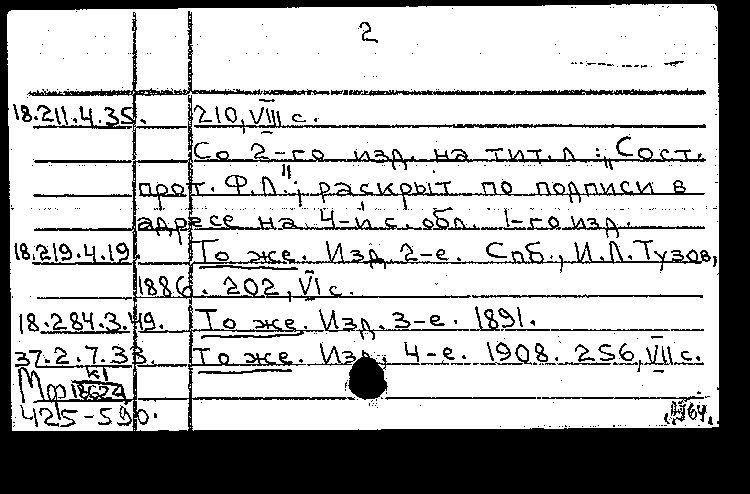 2
18.211.4.35. 210, VIII с.
Со 2-го изд. на тит. л.: „Сост.
прот. Ф.Л."; раскрыт по подписи в
адресе на 4-й с. обл. 1-го изд.
18.219.4.19. То же. Изд. 2-е. Спб., И.Л. Тузов,
1886. 202, VI с.
18.284.3.49. То же. Изд. 3-е. 1891.
37.2.7.33. То же. Изд. 4-е. 1908. 256, VII с.
Мф К1
18622
425-590.